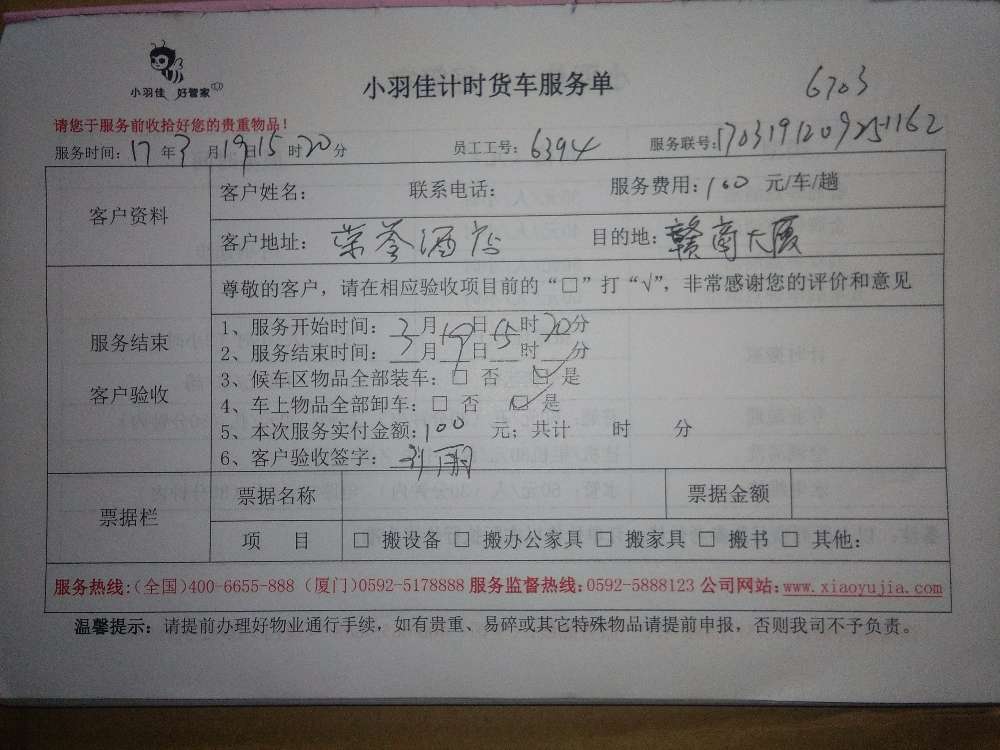 小羽佳 好管家
小羽佳计时货车服务单
6703
请您于服务前收拾好您的贵重物品！
服务时间：17年3月19日15时20分 员工工号：6394 服务联号：1703191209251162
客户资料
客户姓名： 联系电话： 服务费用：100 元/车/趟
客户地址：荣誉酒店 目的地：赣商大厦
服务结束
客户验收
尊敬的客户，请在相应验收项目前的“□”打“√”，非常感谢您的评价和意见
1、服务开始时间：3月19日15时20分
2、服务结束时间：3月19日 时 分
3、候车区物品全部装车：□ 否 ☑ 是
4、车上物品全部卸车：□ 否 ☑ 是
5、本次服务实付金额：100 元；共计 时 分
6、客户验收签字：
票据栏
票据名称 票据金额
项 目 □ 搬设备 □ 搬办公家具 □ 搬家具 □ 搬书 □ 其他：
服务热线:(全国)400-6655-888 (厦门)0592-5178888 服务监督热线:0592-5888123 公司网站:www.xiaoyujia.com
温馨提示：请提前办理好物业通行手续，如有贵重、易碎或其它特殊物品请提前申报，否则我司不予负责。